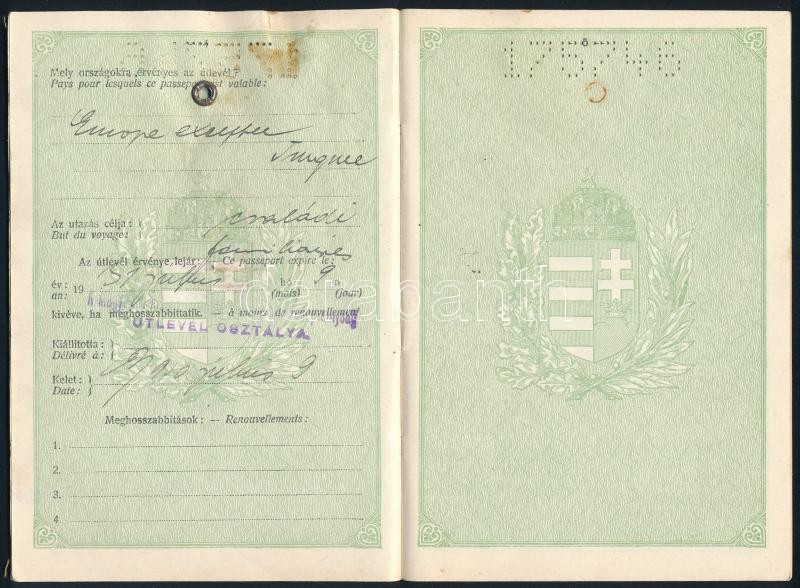 Mely országokra érvényes az útlevél?
Pays pour lesquels ce passeport est valable:
Europe exceptée
Turquie
Az utazás célja: családi
But du voyage: familiaires
Az útlevél érvénye lejár: — Ce passeport expire le:
év: 1931 julius hó 9 n
an: (mois) (jour)
kivéve, ha meghosszabbíttatik. — à moins de renouvellement
ÚTLEVÉL OSZTÁLYA
Kiállította:
Délivré à:
Kelet: julius 9
Date:
Meghosszabbítások: — Renouvellements:
1.
2.
3.
4.
175746
darabanth